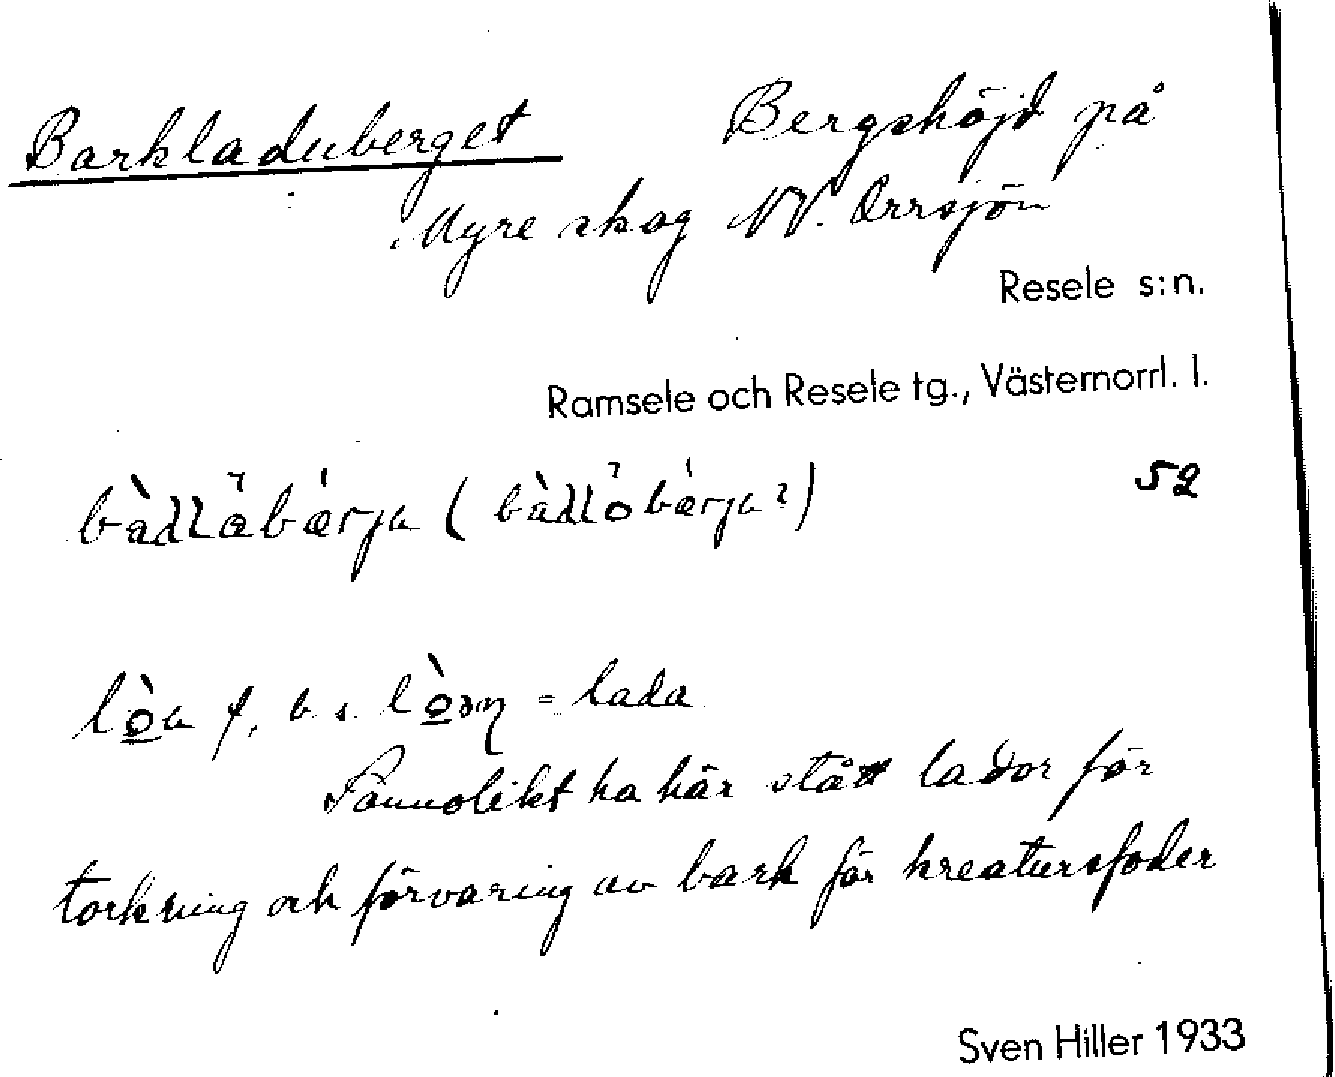 Barkladuberget Bergshöjd på
Myre skog NV. Orrsjön
Resele s:n.
Ramsele och Resele tg., Västernorrl. l.
52
f, b. s. = lada
Sannolikt ha här stått lador för
torkning och förvaring av bark för kreatursfoder
Sven Hiller 1933